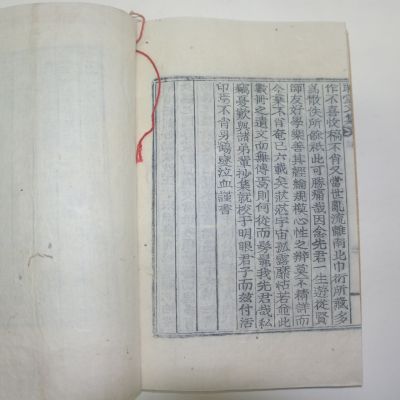 作不喜收稿不肖又當世亂流離南北巾衍所藏多
爲散佚所餘秪此可勝痛哉因念先君一生遊從賢
師友好學樂善其經綸規模心性之辨莫不精詳而
今棄不肖奄已六載矣茫茫宇宙孤露靡怙若並此
數冊之遺文而無傳焉則何從而學髣我先君哉私
竊憂歎與諸弟輩抄集就校于明眼君子而玆付活
印焉不肖男錫 泣血謹書